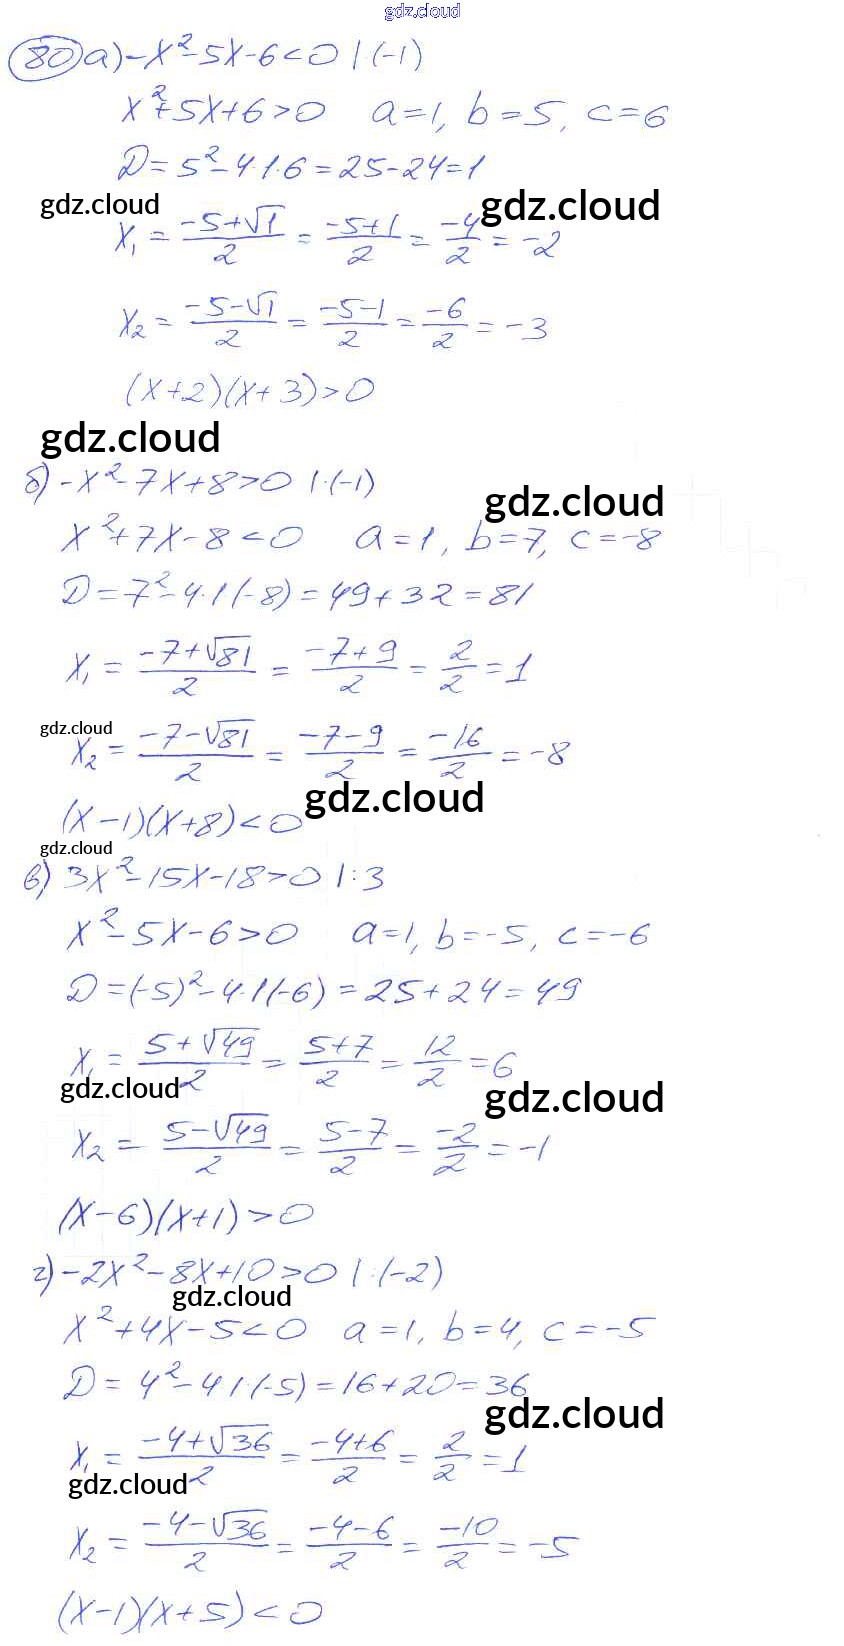 gdz.cloud
80 а) -x²-5x-6<0 | (-1)
x²+5x+6>0 a=1, b=5, c=6
D=5²-4·1·6=25-24=1
gdz.cloud gdz.cloud
x₁ = (-5+√1)/2 = (-5+1)/2 = -4/2 = -2
x₂ = (-5-√1)/2 = (-5-1)/2 = -6/2 = -3
(x+2)(x+3)>0
gdz.cloud
б) -x²-7x+8>0 |·(-1)
gdz.cloud
x²+7x-8<0 a=1, b=7, c=-8
D=7²-4·1(-8)=49+32=81
x₁ = (-7+√81)/2 = (-7+9)/2 = 2/2 = 1
gdz.cloud
x₂ = (-7-√81)/2 = (-7-9)/2 = -16/2 = -8
gdz.cloud
(x-1)(x+8)<0
gdz.cloud
в) 3x²-15x-18>0 |:3
x²-5x-6>0 a=1, b=-5, c=-6
D=(-5)²-4·1(-6)=25+24=49
x₁ = (5+√49)/2 = (5+7)/2 = 12/2 = 6
gdz.cloud gdz.cloud
x₂ = (5-√49)/2 = (5-7)/2 = -2/2 = -1
(x-6)(x+1)>0
г) -2x²-8x+10>0 |:(-2)
gdz.cloud
x²+4x-5<0 a=1, b=4, c=-5
D=4²-4·1·(-5)=16+20=36
gdz.cloud
x₁ = (-4+√36)/2 = (-4+6)/2 = 2/2 = 1
gdz.cloud
x₂ = (-4-√36)/2 = (-4-6)/2 = -10/2 = -5
(x-1)(x+5)<0